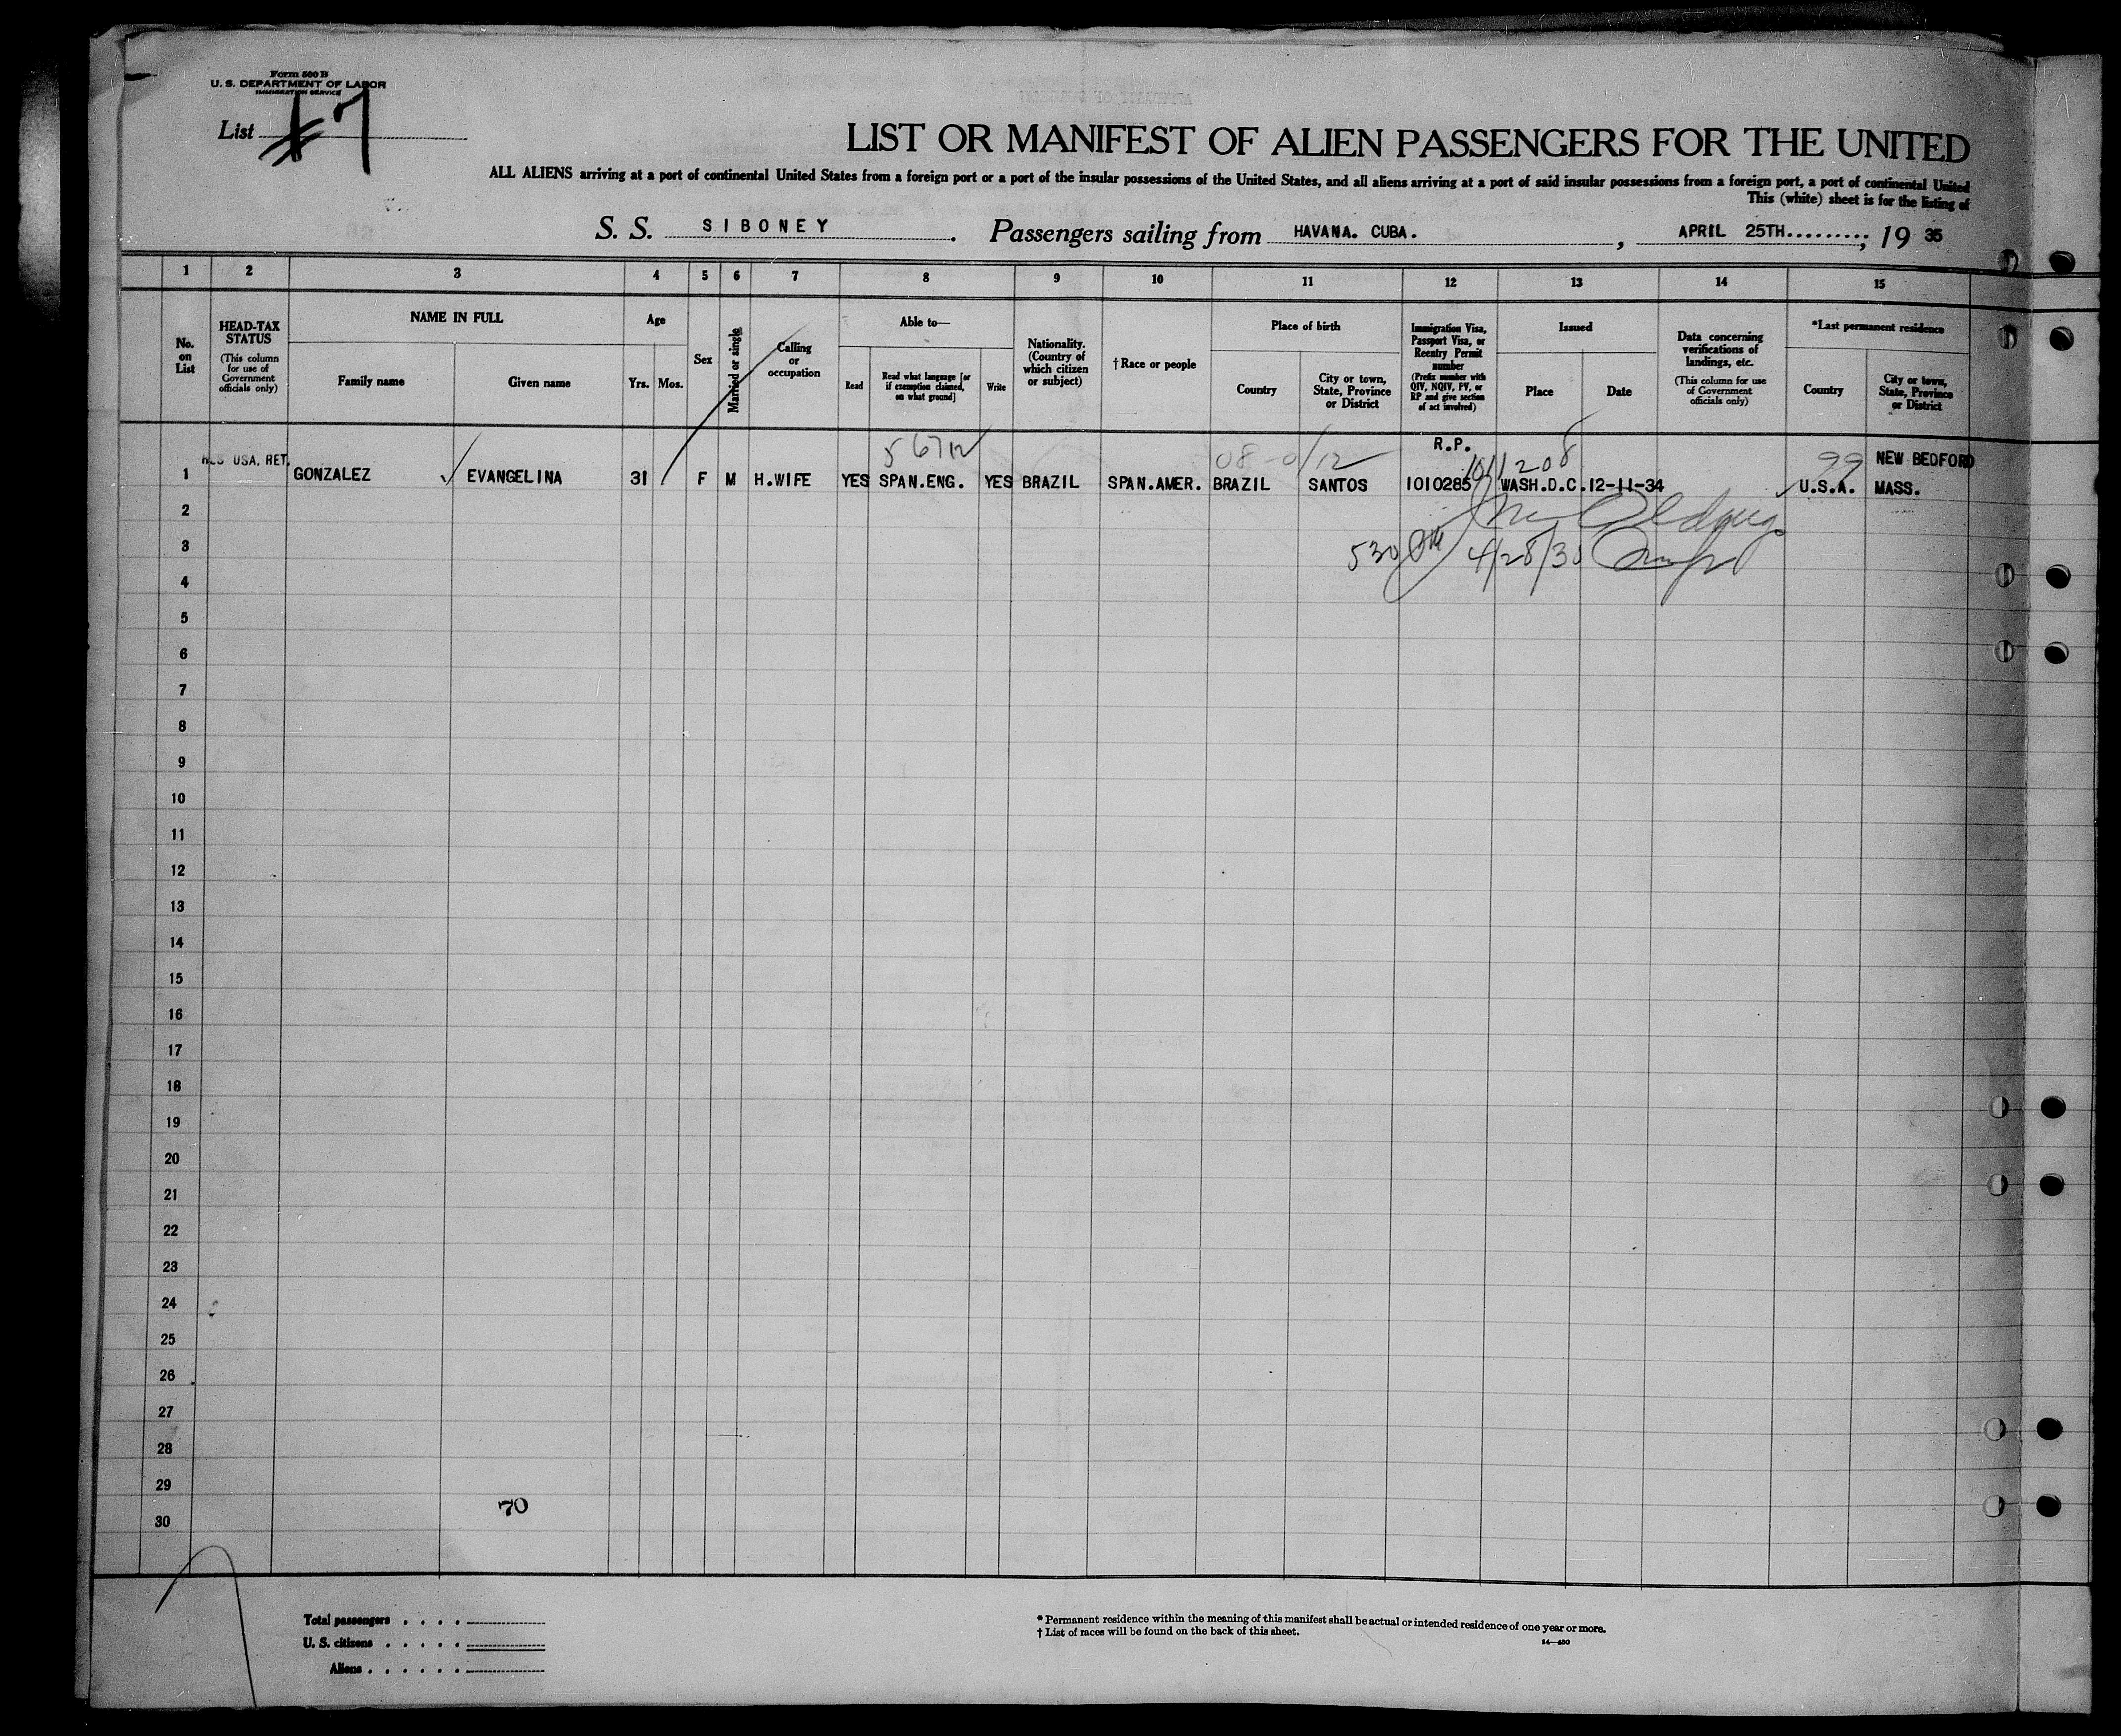 Form 500 B
U. S. DEPARTMENT OF LABOR
IMMIGRATION SERVICE
List 7
LIST OR MANIFEST OF ALIEN PASSENGERS FOR THE UNITED
ALL ALIENS arriving at a port of continental United States from a foreign port or a port of the insular possessions of the United States, and all aliens arriving at a port of said insular possessions from a foreign port, a port of continental United
This (white) sheet is for the listing of
S. S. SIBONEY. Passengers sailing from HAVANA. CUBA. , APRIL 25TH.........; 19 35
1 2 3 4 5 6 7 8 9 10 11 12 13 14 15
No. on List
HEAD-TAX STATUS
(This column for use of Government officials only)
NAME IN FULL
Family name
Given name
Age
Yrs. Mos.
Sex
Married or single
Calling or occupation
Able to—
Read
Read what language [or if exemption claimed, on what ground]
Write
Nationality. (Country of which citizen or subject)
† Race or people
Place of birth
Country
City or town, State, Province or District
Immigration Visa, Passport Visa, or Reentry Permit number
(Prefix number with QIV, NQIV, PV, or RP and give section of act involved)
Issued
Place
Date
Data concerning verifications of landings, etc.
(This column for use of Government officials only)
*Last permanent residence
Country
City or town, State, Province or District
5 6712
08-0/12
R.P.
1011208
99
NEW BEDFORD
USA, RET.
1 GONZALEZ EVANGELINA 31 F M H.WIFE YES SPAN.ENG. YES BRAZIL SPAN.AMER. BRAZIL SANTOS 1010285 WASH.D.C. 12-11-34 U.S.A. MASS.
2
3 530 4/28/30
4
5
6
7
8
9
10
11
12
13
14
15
16
17
18
19
20
21
22
23
24
25
26
27
28
29
70
30
Total passengers . . . .
U. S. citizens . . . . .
Aliens . . . . . .
* Permanent residence within the meaning of this manifest shall be actual or intended residence of one year or more.
† List of races will be found on the back of this sheet.
14—430